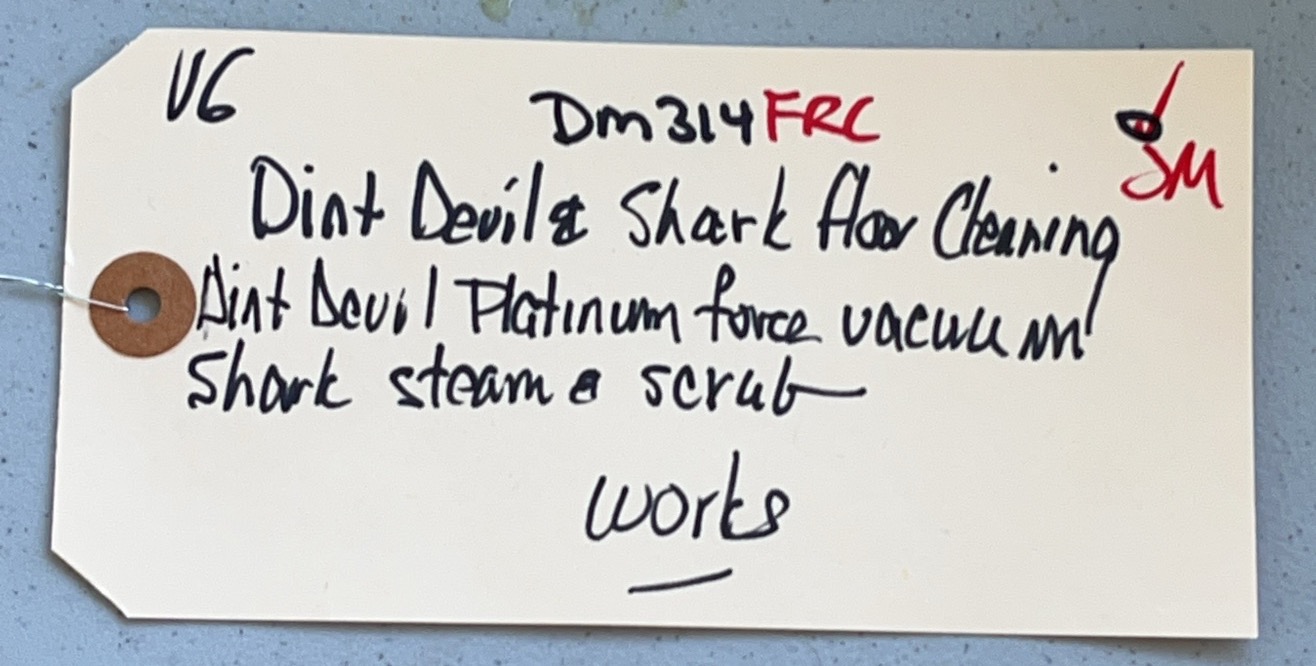 V6
Dm314FRC
SM
Dirt Devil & Shark floor Cleaning
Dirt Devil Platinum force vacuum
Shark steam & scrub
works